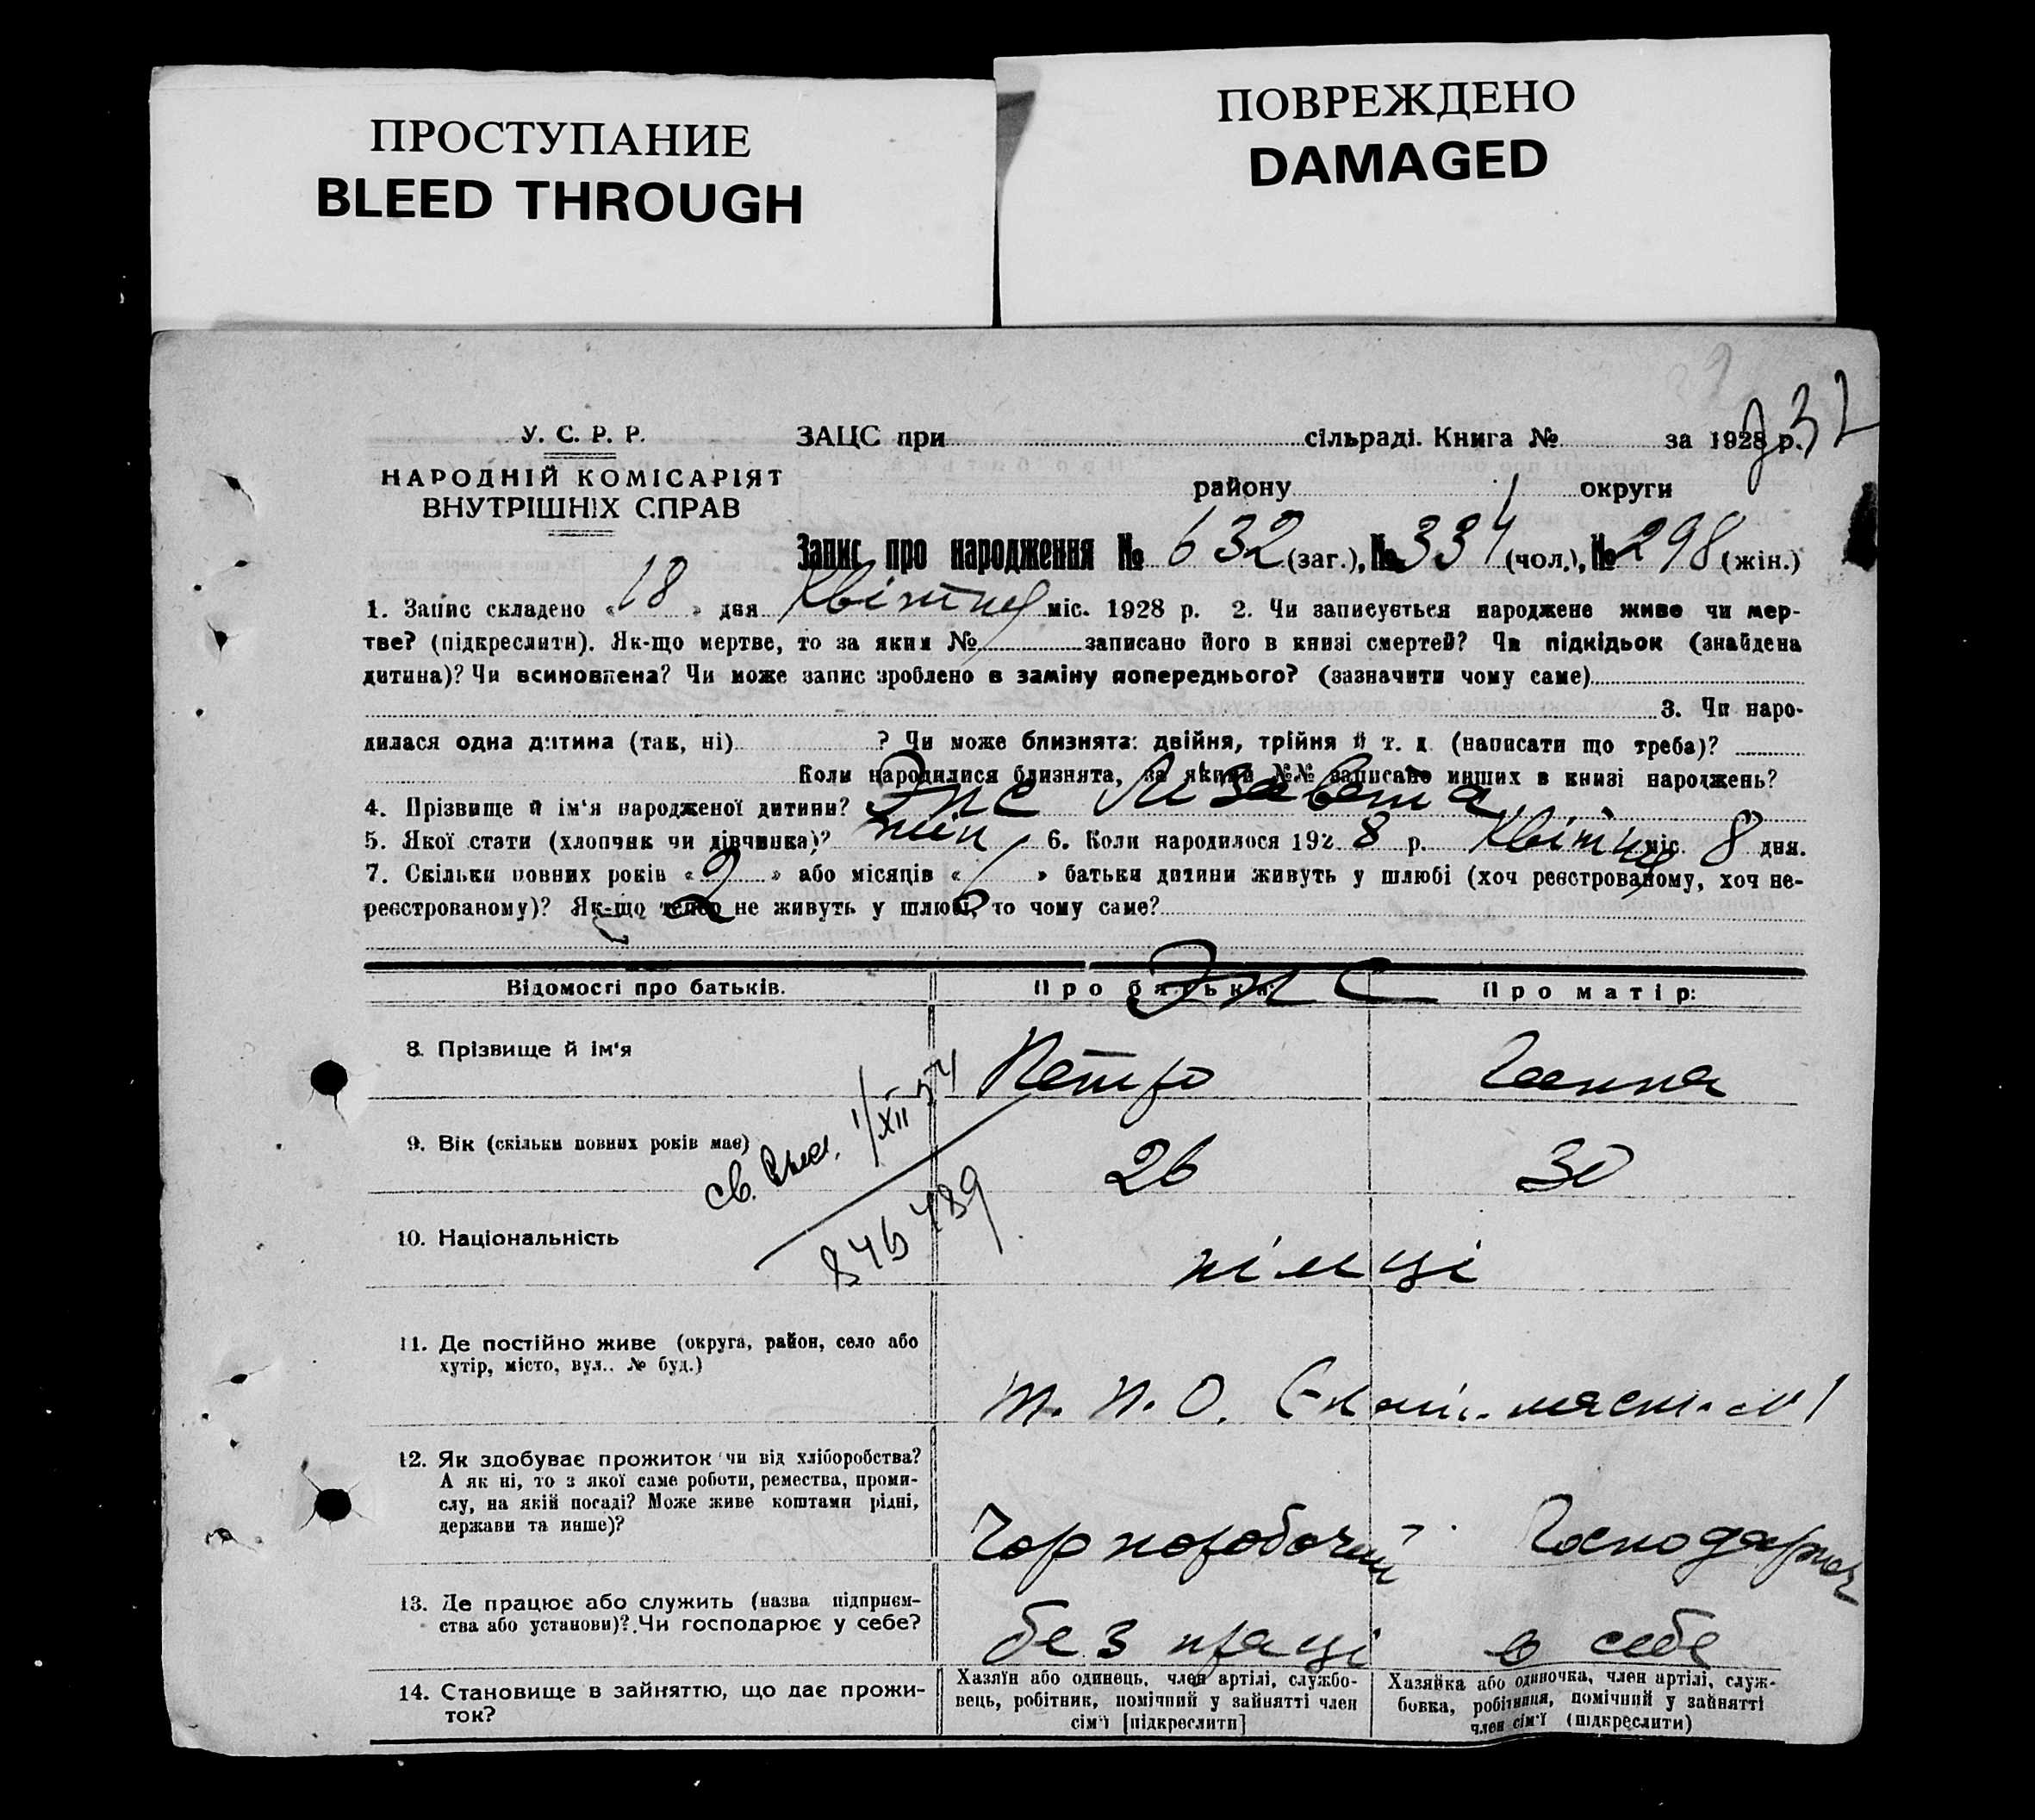 ПРОСТУПАНИЕ
BLEED THROUGH
ПОВРЕЖДЕНО
DAMAGED
32
У. С. Р. Р.
НАРОДНІЙ КОМІСАРІЯТ
ВНУТРІШНІХ СПРАВ
ЗАЦС при сільраді. Книга № за 1928 р.
району округи
Запис про народження № 632 (заг.), № 334 (чол.), № 298 (жін.)
1. Запис складено « 18 » дня Квітня міс. 1928 р. 2. Чи записується народжене живе чи мер-
тве? (підкреслити). Як-що мертве, то за яким № записано його в книзі смертей? Чи підкідьок (знайдена
дитина)? Чи всиновлена? Чи може запис зроблено в заміну попереднього? (зазначити чому саме)
3. Чи наро-
дилася одна дитина (так, ні) ? Чи може близнята: двійня, трійня й т. д. (написати що треба)?
Коли народилися близнята, за якими №№ записано инших в книзі народжень?
4. Прізвище й ім'я народженої дитини? Энс Лізавета
5. Якої стати (хлопчик чи дівчинка)? жін 6. Коли народилося 192 8 р. Квітня міс. 8 дня.
7. Скільки повних років « 2 » або місяців « 6 » батьки дитини живуть у шлюбі (хоч реєстрованому, хоч не-
реєстрованому)? Як-що тепер не живуть у шлюбі, то чому саме?
2
Відомості про батьків. Про батька: Про матір:
Энс
8. Прізвище й ім'я Петро Ганна
9. Вік (скільки повних років має) 26 30
св. 1/XII
846489
10. Національність німці
11. Де постійно живе (округа, район, село або
хутір, місто, вул.. № буд.)
12. Як здобуває прожиток чи від хліборобства?
А як ні, то з якої саме роботи, ремества, проми-
слу, на якій посаді? Може живе коштами рідні,
держави та инше)?
Чорноробочий Господарка
13. Де працює або служить (назва підприєм-
ства або установи)? Чи господарює у себе?
без праці в себе
14. Становище в зайняттю, що дає прожи-
ток?
Хазяїн або одинець, член артілі, службо-
вець, робітник, помічний у зайнятті член
сім'ї [підкреслити]
Хазяйка або одиночка, член артілі, служ-
бовка, робітниця, помічний у зайнятті
член сім'ї (підкреслити)